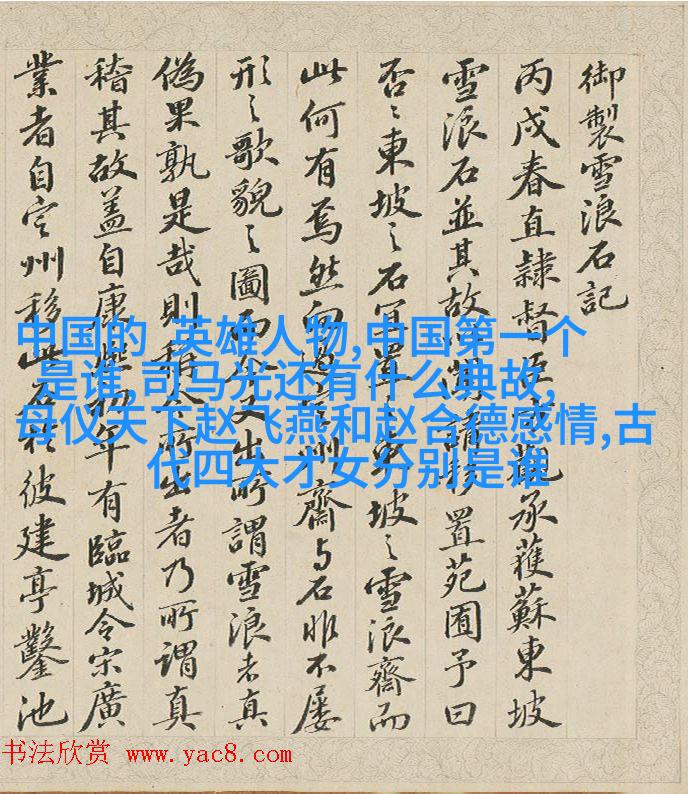 御製雪浪石記
丙戌春直隸督臣觀承獲蘇東坡
雪浪石並其故置苑囿予曰
否〻東坡〻石坡〻雪浪齋而
此何有焉然向州齋与石非不屡
形〻歌貌〻圖而今又出所謂雪浪者真
偽果孰是哉則所出者乃所謂真
稽其故盖自康熙初年有臨城令宋廣
業者自定州移此石於彼建亭鑿池
中国的 英雄人物,中国第一个
是谁,司马光还有什么典故,
母仪天下赵飞燕和赵合德感情,古
代四大才女分别是谁
书法欣赏 www.yac8.com